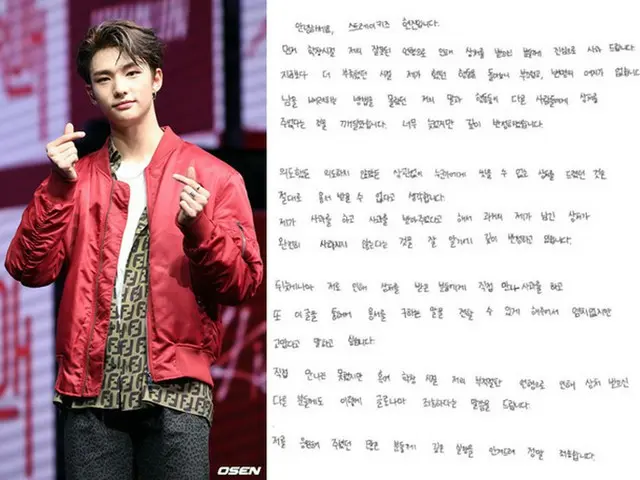 안녕하세요, 스트레이키즈 현진입니다.
먼저 학창시절 저의 잘못된 언행으로 인해 상처를 받으신 분들께 진심으로 사과 드립니다.
지금보다 더 부족했던 시절 제가 했던 행동을 돌아보니 부끄럽고, 변명의 여지가 없습니다.
남을 배려하는 방법을 몰랐던 저의 말과 행동들이 다른 사람들에게 상처를
주었다는 것을 깨달았습니다. 너무 늦었지만 깊이 반성하겠습니다.
의도했든 의도하지 않았든 상관없이 누군가에게 씻을 수 없는 상처를 드렸던 것은
절대로 용서 받을 수 없다고 생각합니다.
제가 사과를 하고 사과를 받아주셨다고 해서 과거의 제가 남긴 상처가
완전히 사라지지 않는다는 것을 잘 알기에 깊이 반성하고 있습니다.
뒤늦게나마 저로 인해 상처를 받은 분들에게 직접 만나 사과를 하고
또 이 글을 통해서 용서를 구하는 말을 전할 수 있게 해주어서 염치없지만
고맙다고 말하고 싶습니다.
직접 만나진 못했지만 혹여 학창 시절 저의 부적절한 언행으로 인해 상처 받으신
다른 분들께도 이렇게 글로나마 죄송하다는 말씀을 드립니다.
저를 응원해 주셨던 많은 분들께 깊은 실망을 안겨드려 정말 죄송합니다.
OSEN